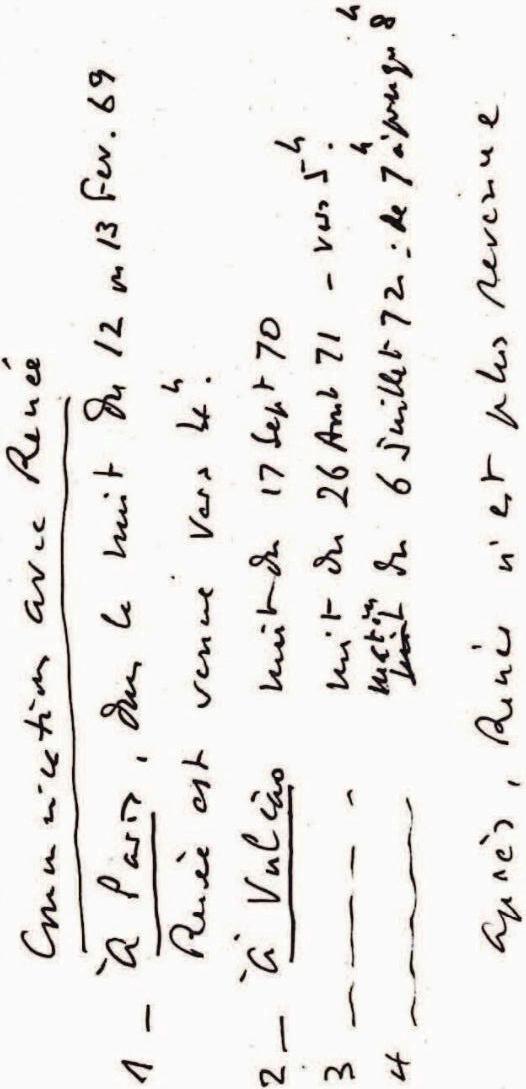 Communication avec Renée
1 — à Paris, dans la nuit du 12 au 13 Fev. 69
Renée est venue vers 4h.
2 — à Vulcano nuit du 17 Sept 70
3 — — — - nuit du 26 Août 71 - vers 5h.
4 — — — — matin du 6 Juillet 72 : de 7h à presque 8h
après, Renée n'est plus revenue